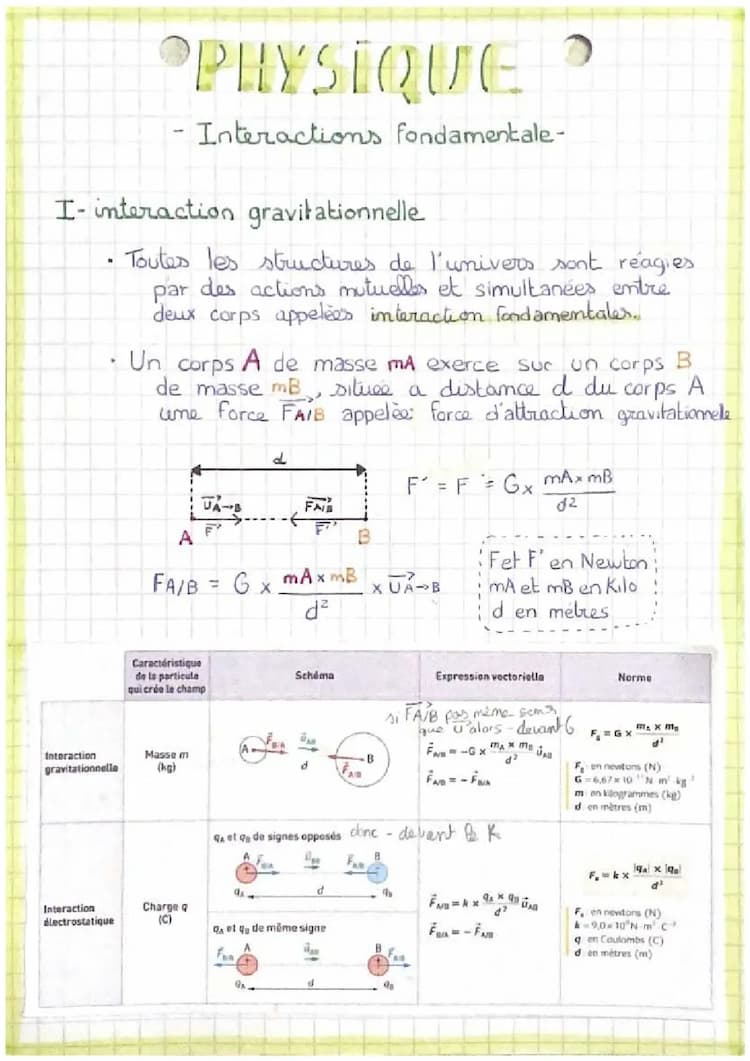 PHYSIQUE
- Interactions fondamentale -
I- interaction gravitationnelle
• Toutes les structures de l'univers sont réagies
par des actions mutuelles et simultanées entre
deux corps appelées interaction fondamentales.
• Un corps A de masse mA exerce sur un corps B
de masse mB, située a distance d du corps A
une force FA/B appelée: force d'attraction gravitationnele
d
UA→B FA/B
A F F' B
F' = F = G x mA x mB
d2
FA/B = G x mA x mB x UA→B
d²
F et F' en Newton
mA et mB en Kilo
d en mètres
Caractéristique
de la particule
qui crée le champ
Schéma
Expression vectorielle
Norme
Interaction
gravitationnelle
Masse m
(kg)
A F B/A u AB
d
B F A/B
si FA/B pas même sens
que U alors - devant G
F A/B = -G x mA x mB u AB
d²
F A/B = - F B/A
Fg = G x mA x mB
d²
Fg en newtons (N)
G = 6,67 x 10⁻¹¹ N·m²·kg⁻²
m en kilogrammes (kg)
d en mètres (m)
Interaction
électrostatique
Charge q
(C)
qA et qB de signes opposés donc - devant le K
A F B/A u AB F A/B B
qA d qB
qA et qB de même signe
F B/A A u AB B F A/B
qA d qB
F A/B = k x qA x qB u AB
d²
F B/A = - F A/B
Fe = k x |qA| x |qB|
d²
Fe en newtons (N)
k = 9,0 x 10⁹ N·m²·C⁻²
q en Coulombs (C)
d en mètres (m)